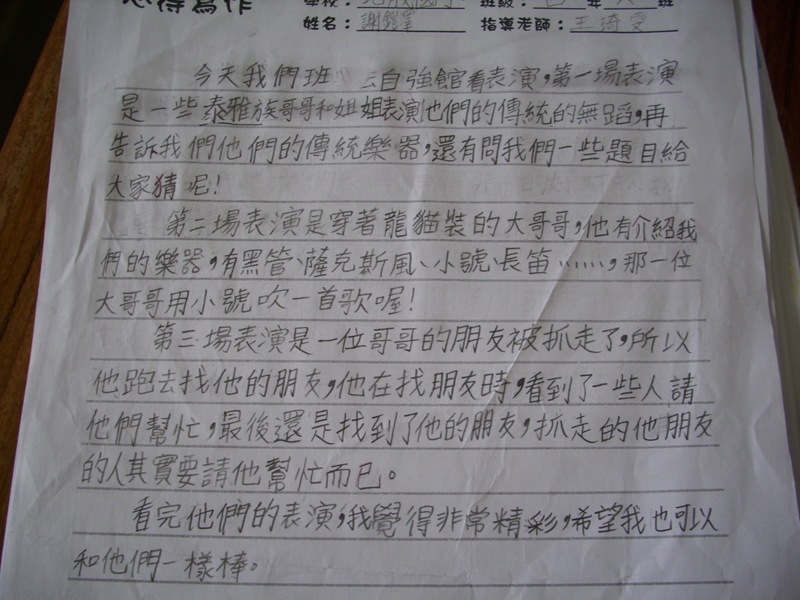 心得寫作 學校： 班級： 年 班
姓名：謝 指導老師：王琦雯
今天我們班 去自強館看表演，第一場表演
是一些泰雅族哥哥和姐姐表演他們的傳統的無蹈，再
告訴我們他們的傳統樂器，還有問我們一些題目給
大家猜呢！
第二場表演是穿著龍貓裝的大哥哥，他有介紹我
們的樂器，有黑管、薩克斯風、小號、長笛……，那一位
大哥哥用小號吹一首歌喔！
第三場表演是一位哥哥的朋友被抓走了，所以
他跑去找他的朋友，他在找朋友時，看到了一些人請
他們幫忙，最後還是找到了他的朋友，抓走的他朋友
的人其實要請他幫忙而已。
看完他們的表演，我覺得非常精彩，希望我也可以
和他們一樣棒。